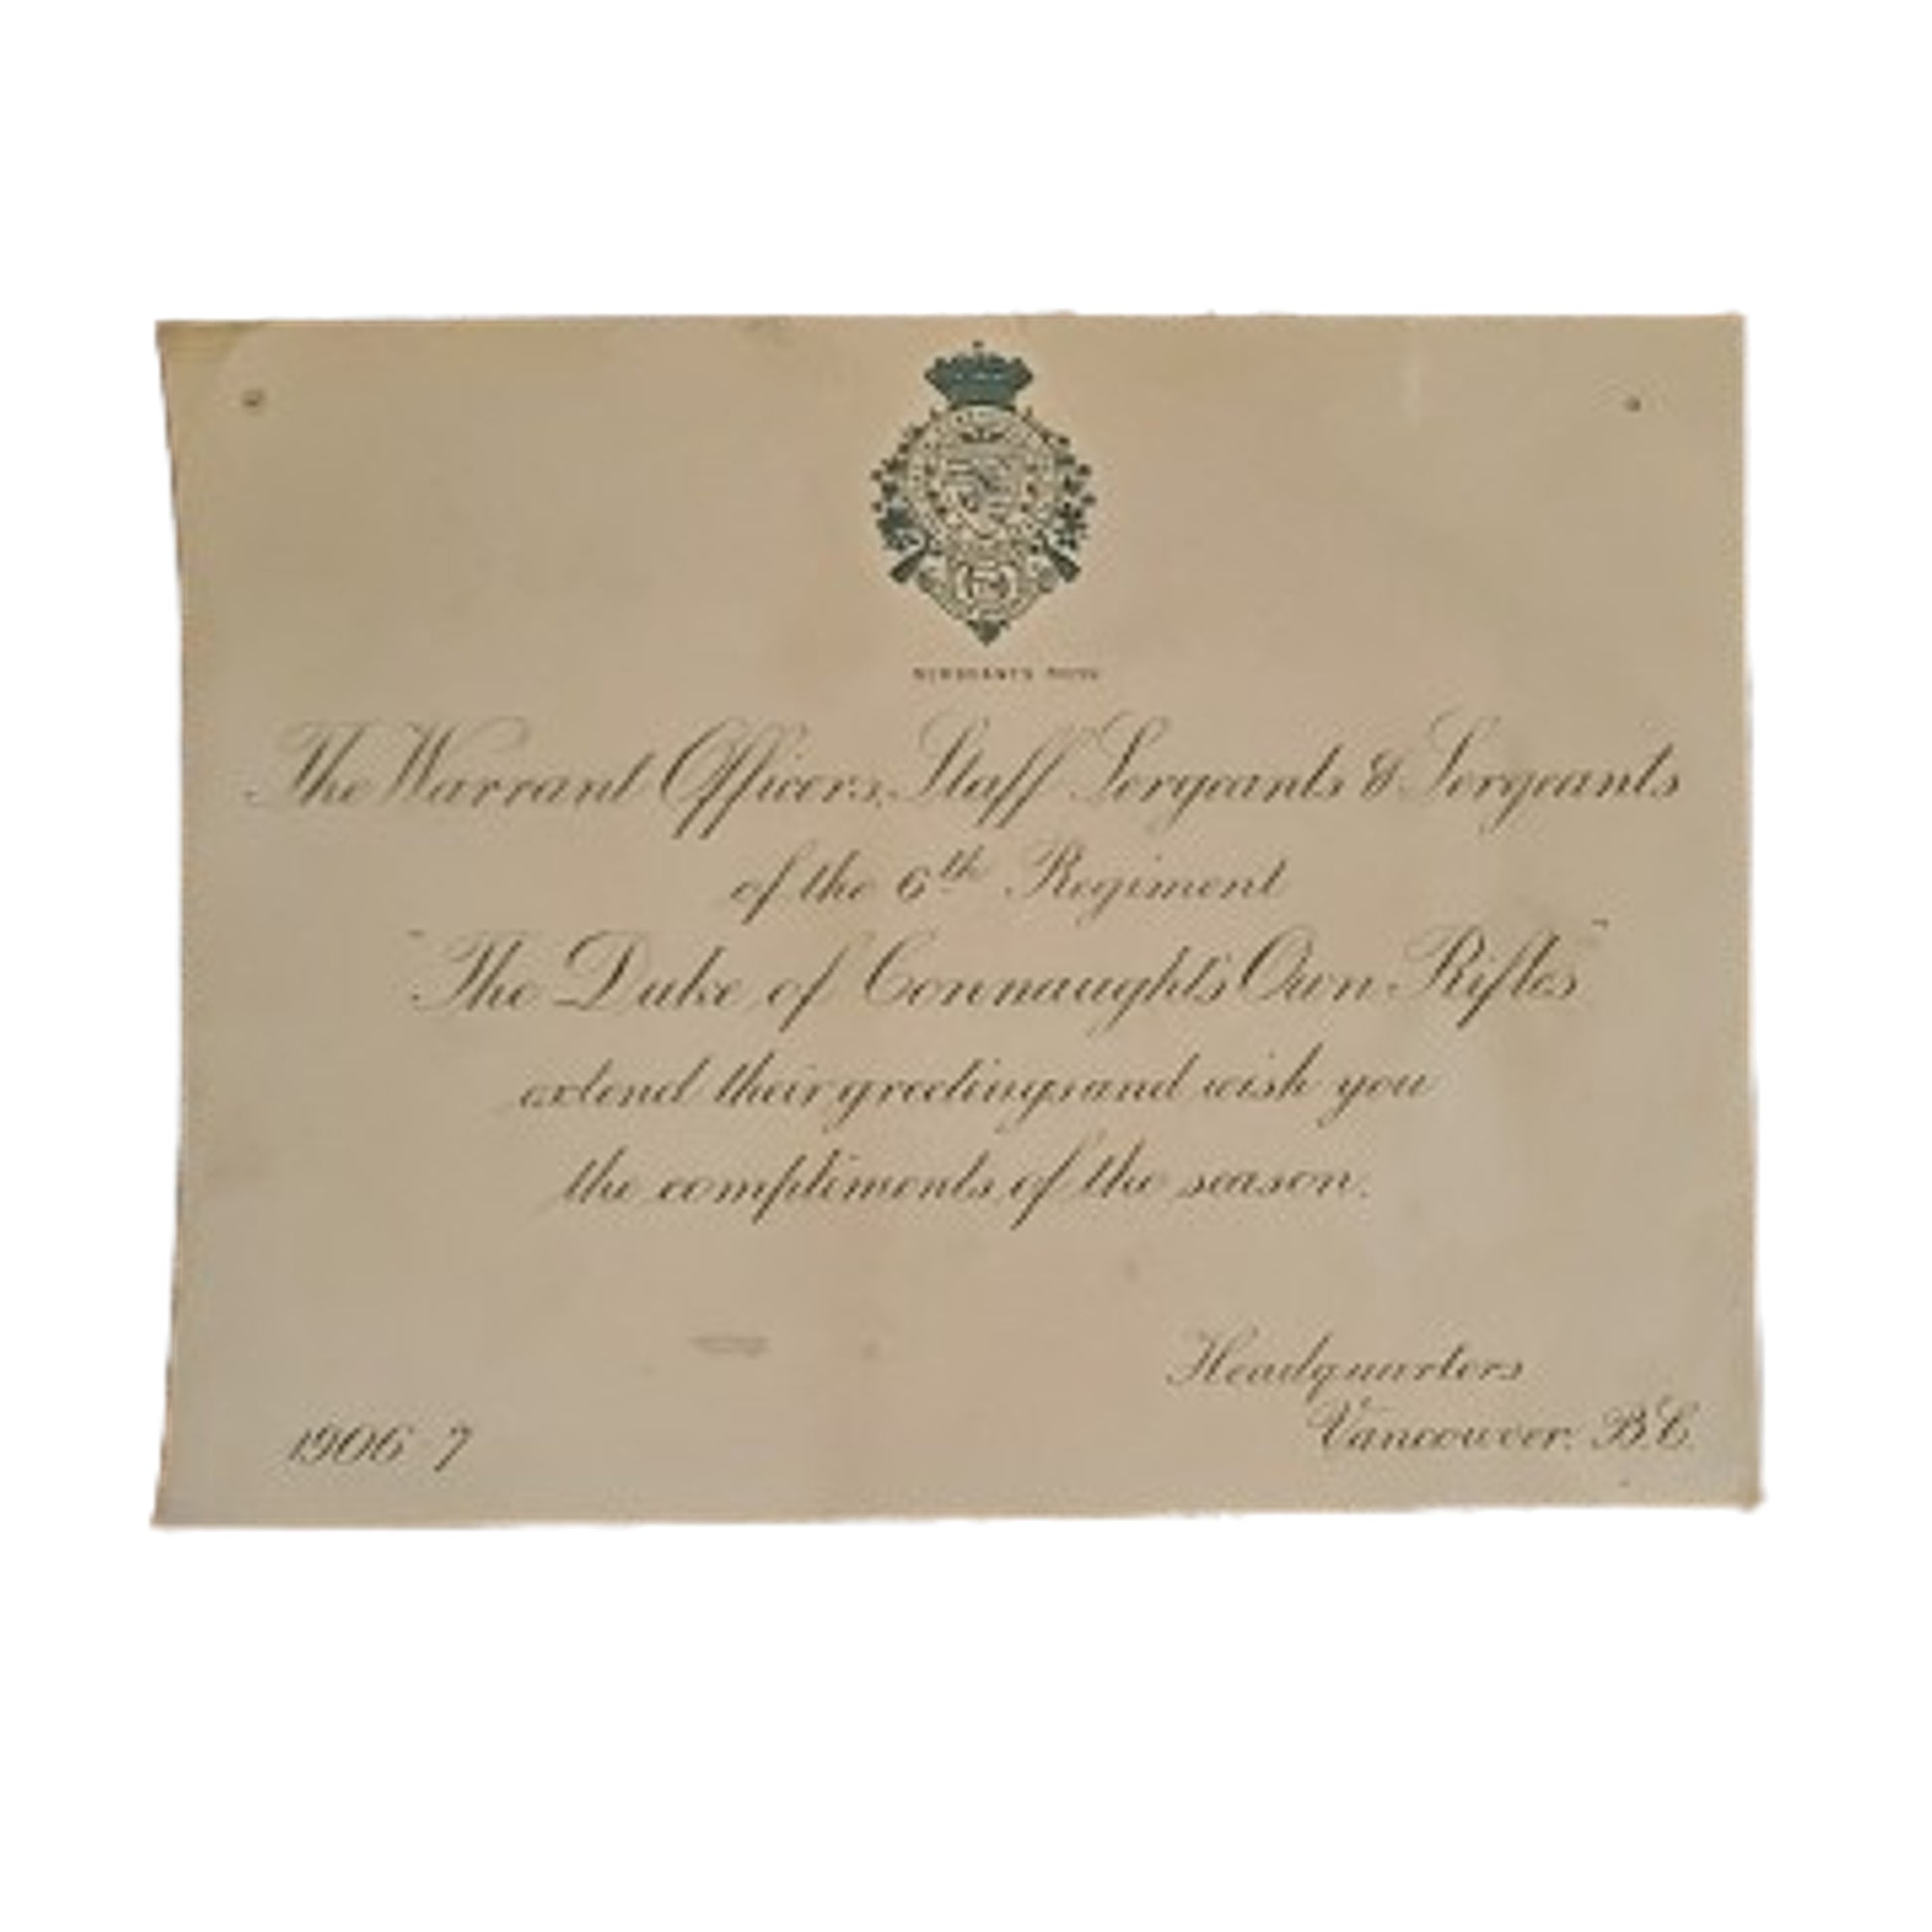 SERGEANTS MESS
The Warrant Officers, Staff Sergeants & Sergeants
of the 6th Regiment
"The Duke of Connaught's Own Rifles"
extend their greetings and wish you
the compliments of the season.
Headquarters
1906-7 Vancouver. B.C.